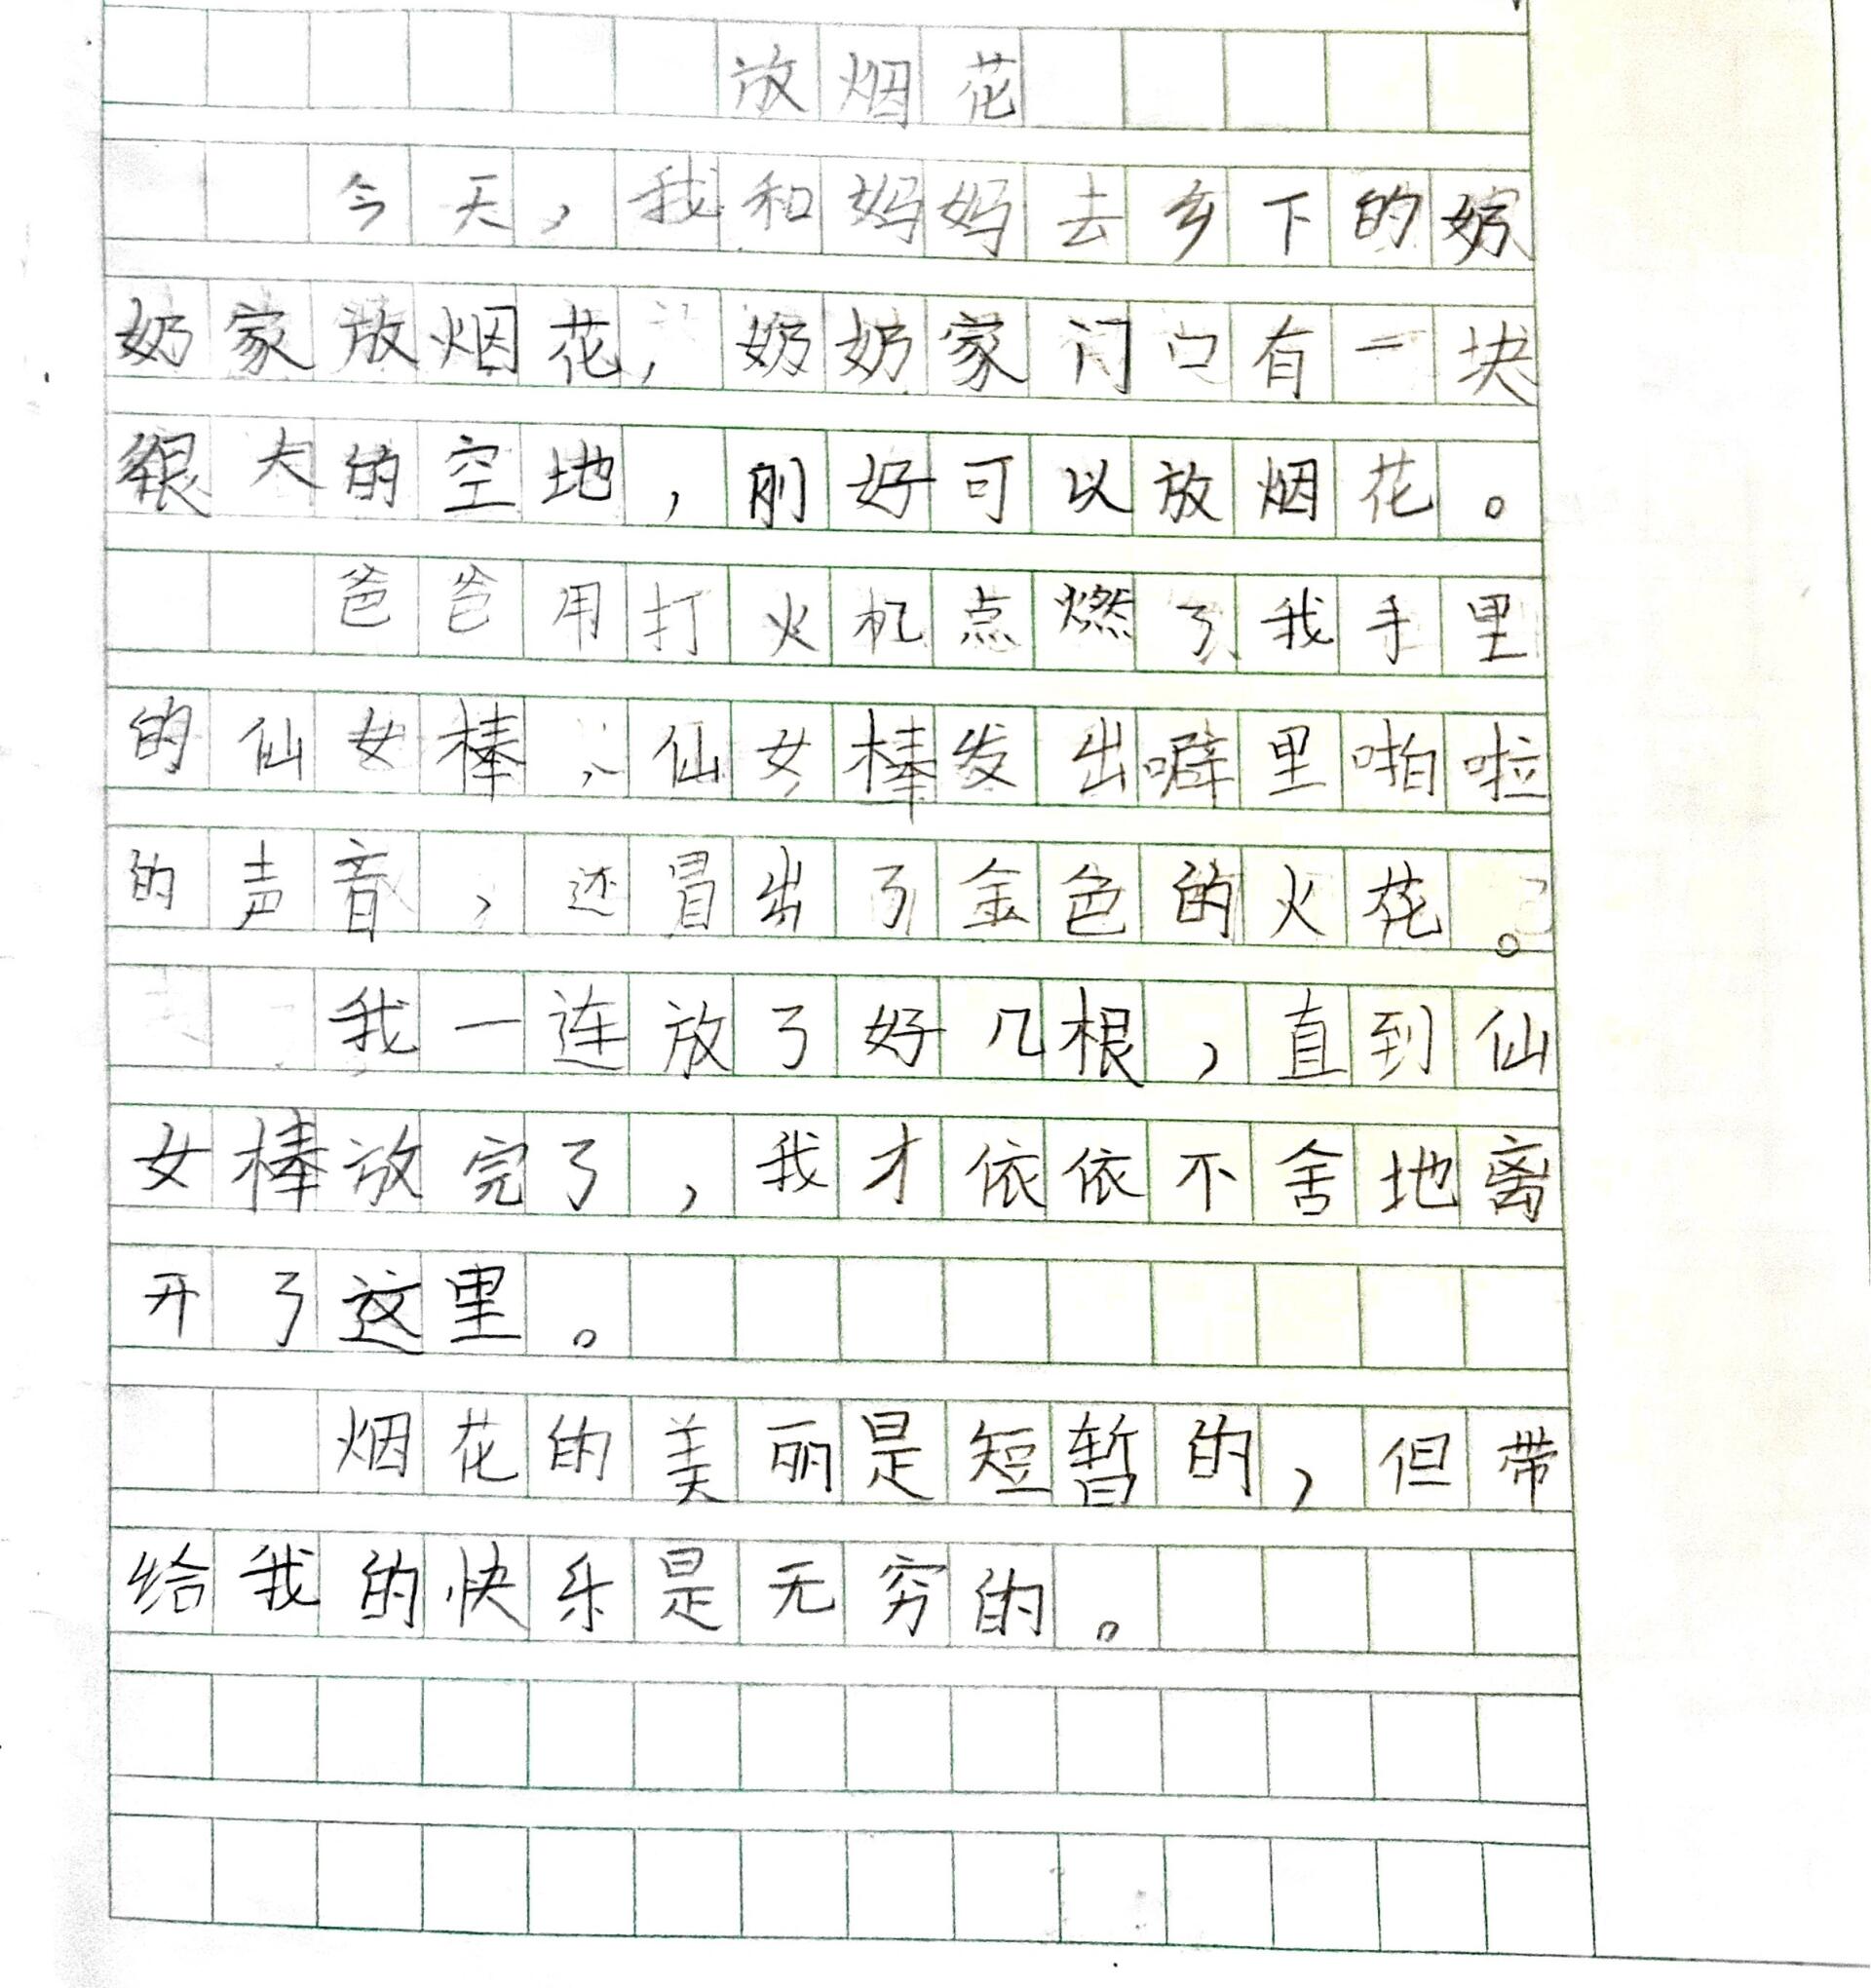 放烟花
今天，我和妈妈去乡下的奶
奶家放烟花，奶奶家门口有一块
很大的空地，刚好可以放烟花。
爸爸用打火机点燃了我手里
的仙女棒，仙女棒发出噼里啪啦
的声音，还冒出了金色的火花。
我一连放了好几根，直到仙
女棒放完了，我才依依不舍地离
开了这里。
烟花的美丽是短暂的，但带
给我的快乐是无穷的。